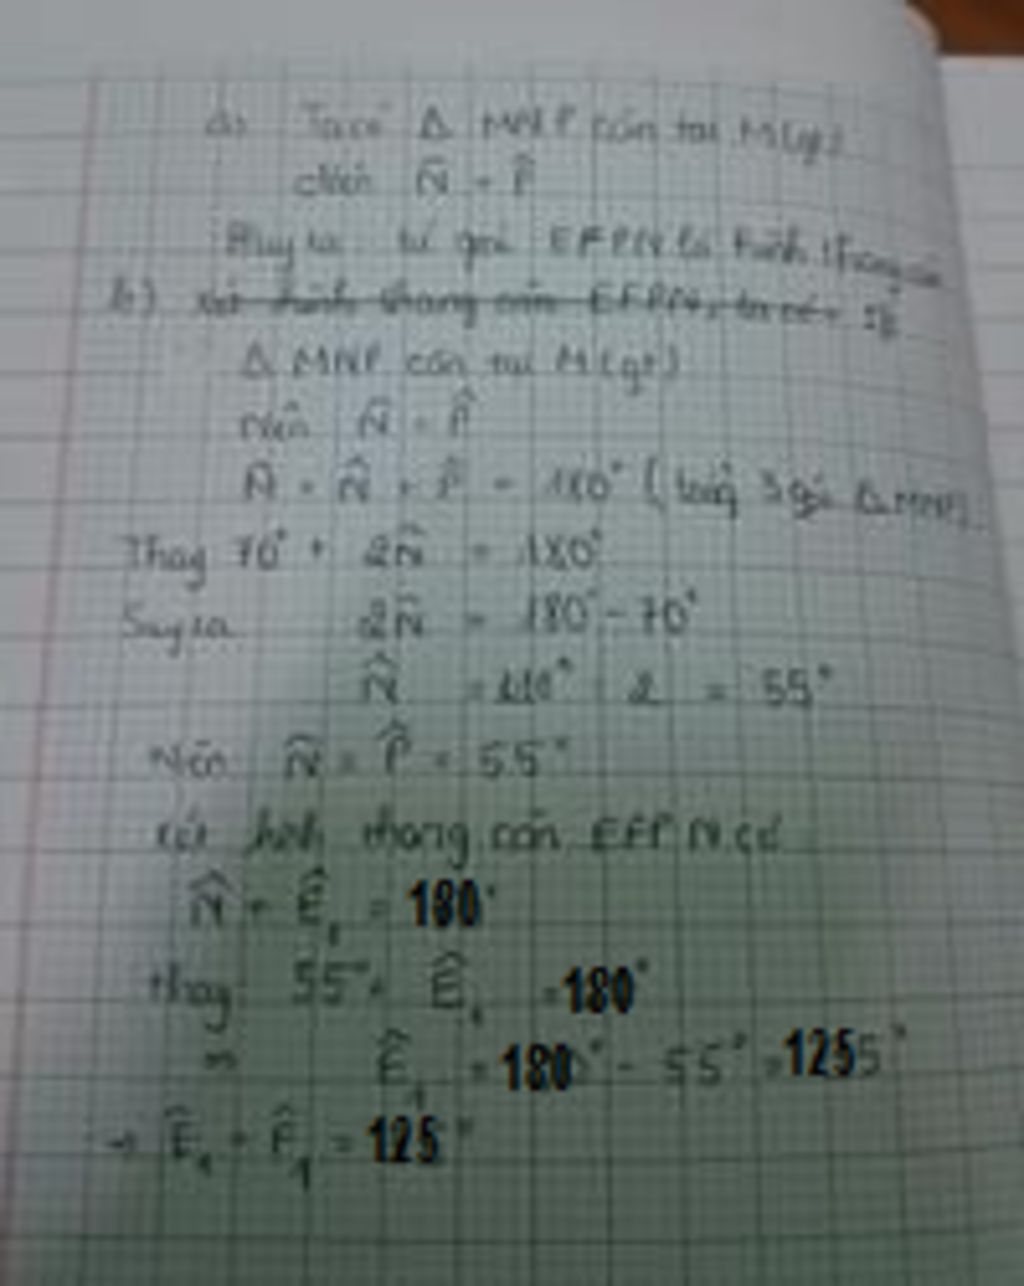 a) Ta có Δ MNP cân tại M(gt)
Nên N̂ = P̂
Suy ra tứ giác EFPN là hình thang cân
b) xét hình thang cân EFPN, ta có:
Δ MNP cân tại M(gt)
Nên N̂ = P̂
M̂ + N̂ + P̂ = 180° (tổng 3 góc Δ MNP)
Thay 70° + 2N̂ = 180°
Suy ra 2N̂ = 180° - 70°
N̂ = 110° : 2 = 55°
Nên N̂ = P̂ = 55°
xét hình thang cân EFPN có
N̂ + Ê₁ = 180°
thay 55° + Ê₁ = 180°
Ê₁ = 180° - 55° = 1255°
→ Ê₁ = F̂₁ = 125°